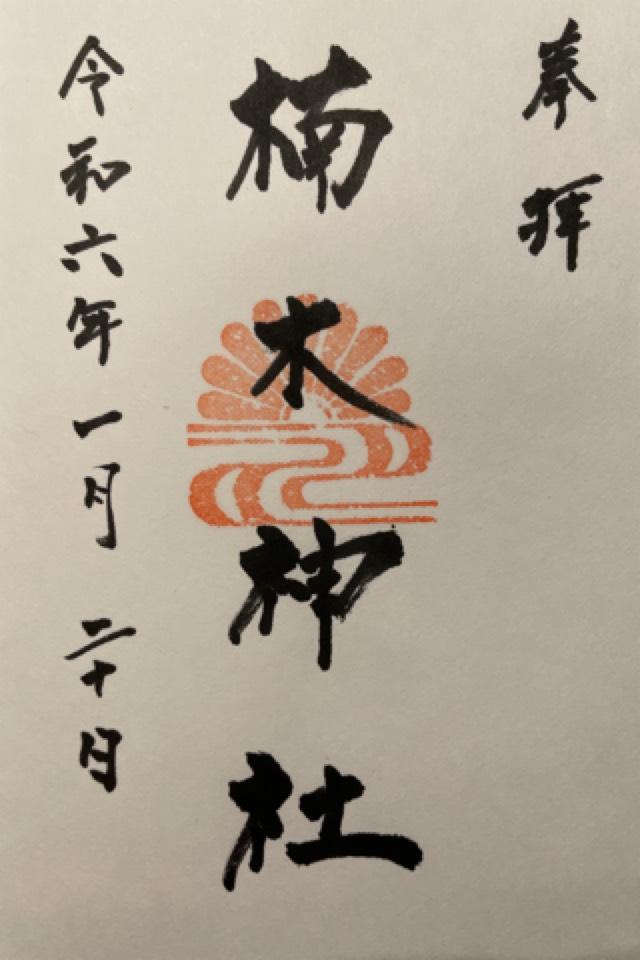 奉拝
楠木神社
令和六年一月二十日